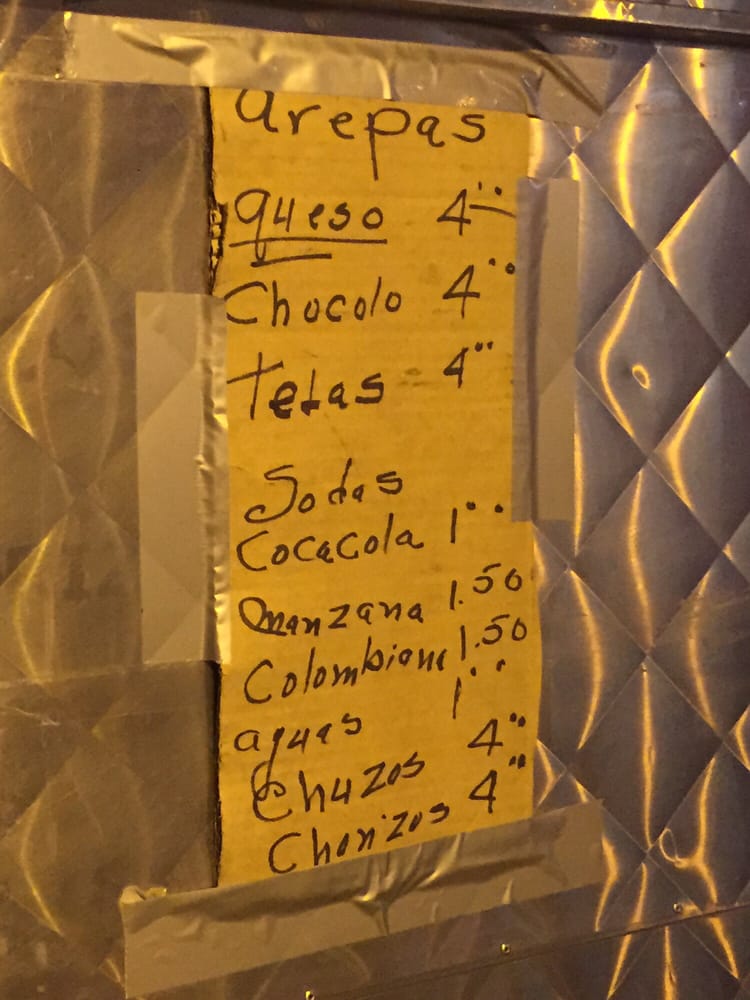 arepas
queso 4¨
Chocolo 4¨
Tetas 4¨
Sodas
Cocacola 1¨
Manzana 1.50
Colombiana 1.50
aguas 1¨
Chuzos 4¨
Chorizos 4¨